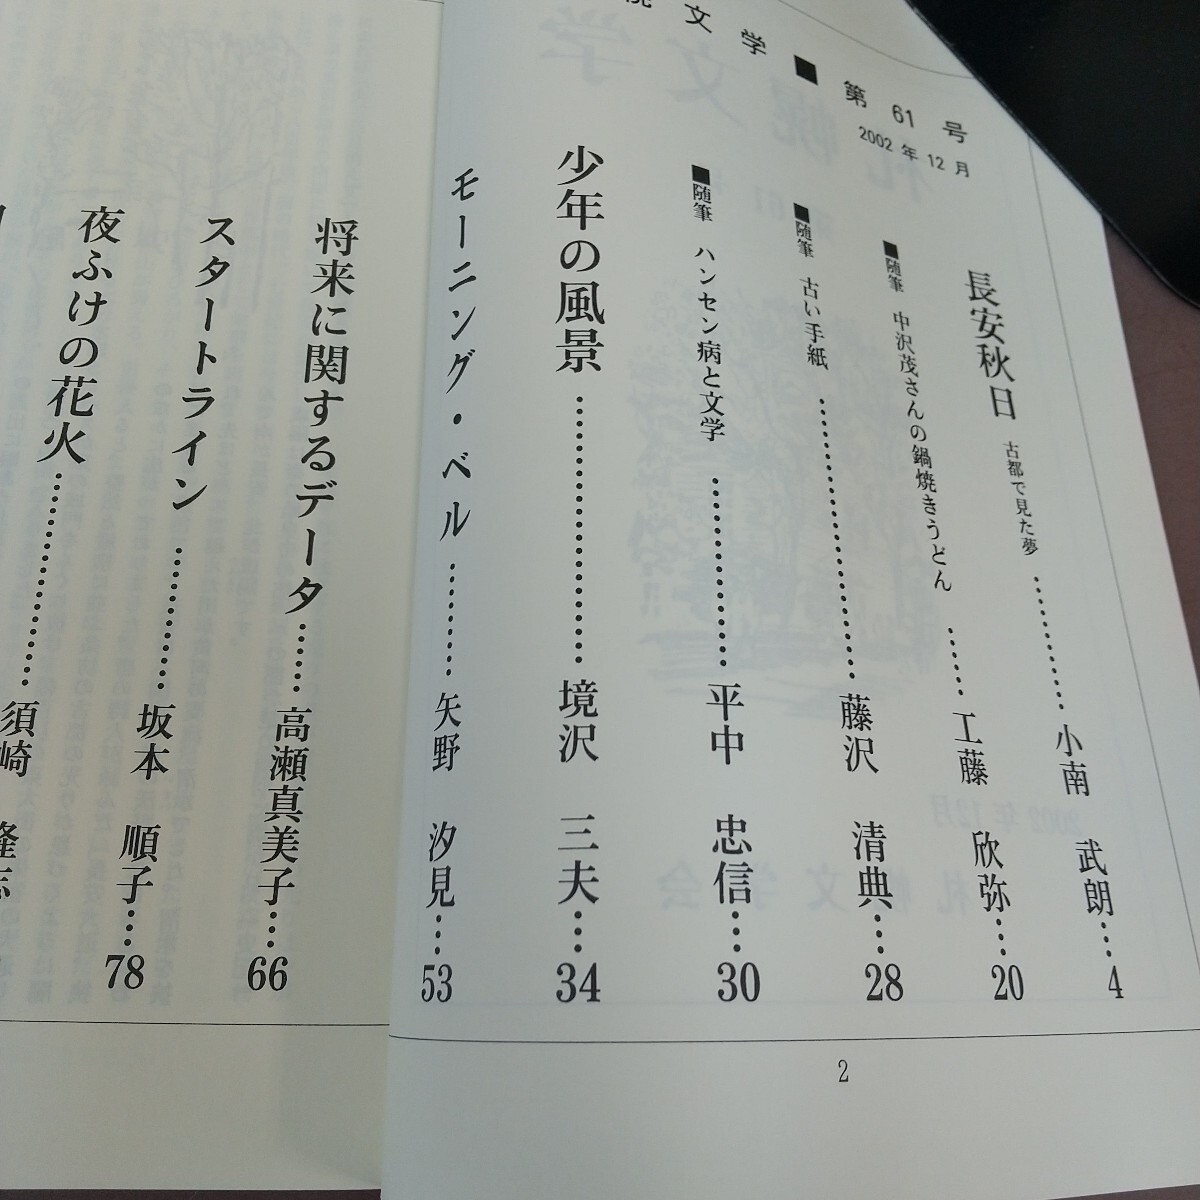 文学■第61号
2002年12月
長安秋日 古都で見た夢…………小南 武朗…4
■随筆 中沢茂さんの鍋焼きうどん……工藤 欣弥…20
■随筆 古い手紙…………………藤沢 清典…28
■随筆 ハンセン病と文学……………平中 忠信…30
少年の風景…………………境沢 三夫…34
モーニング・ベル…………矢野 汐見…53
将来に関するデータ……高瀬真美子…66
スタートライン…………坂本 順子…78
夜ふけの花火………………須崎 隆志
2